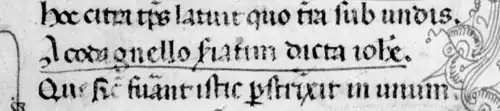 hoc citra tp̄s latuit quo t̄ra sub undis.
A codagnello fiatim dicta iohe̅.
Que sic fu̅ant istic p̲strixit in unum.